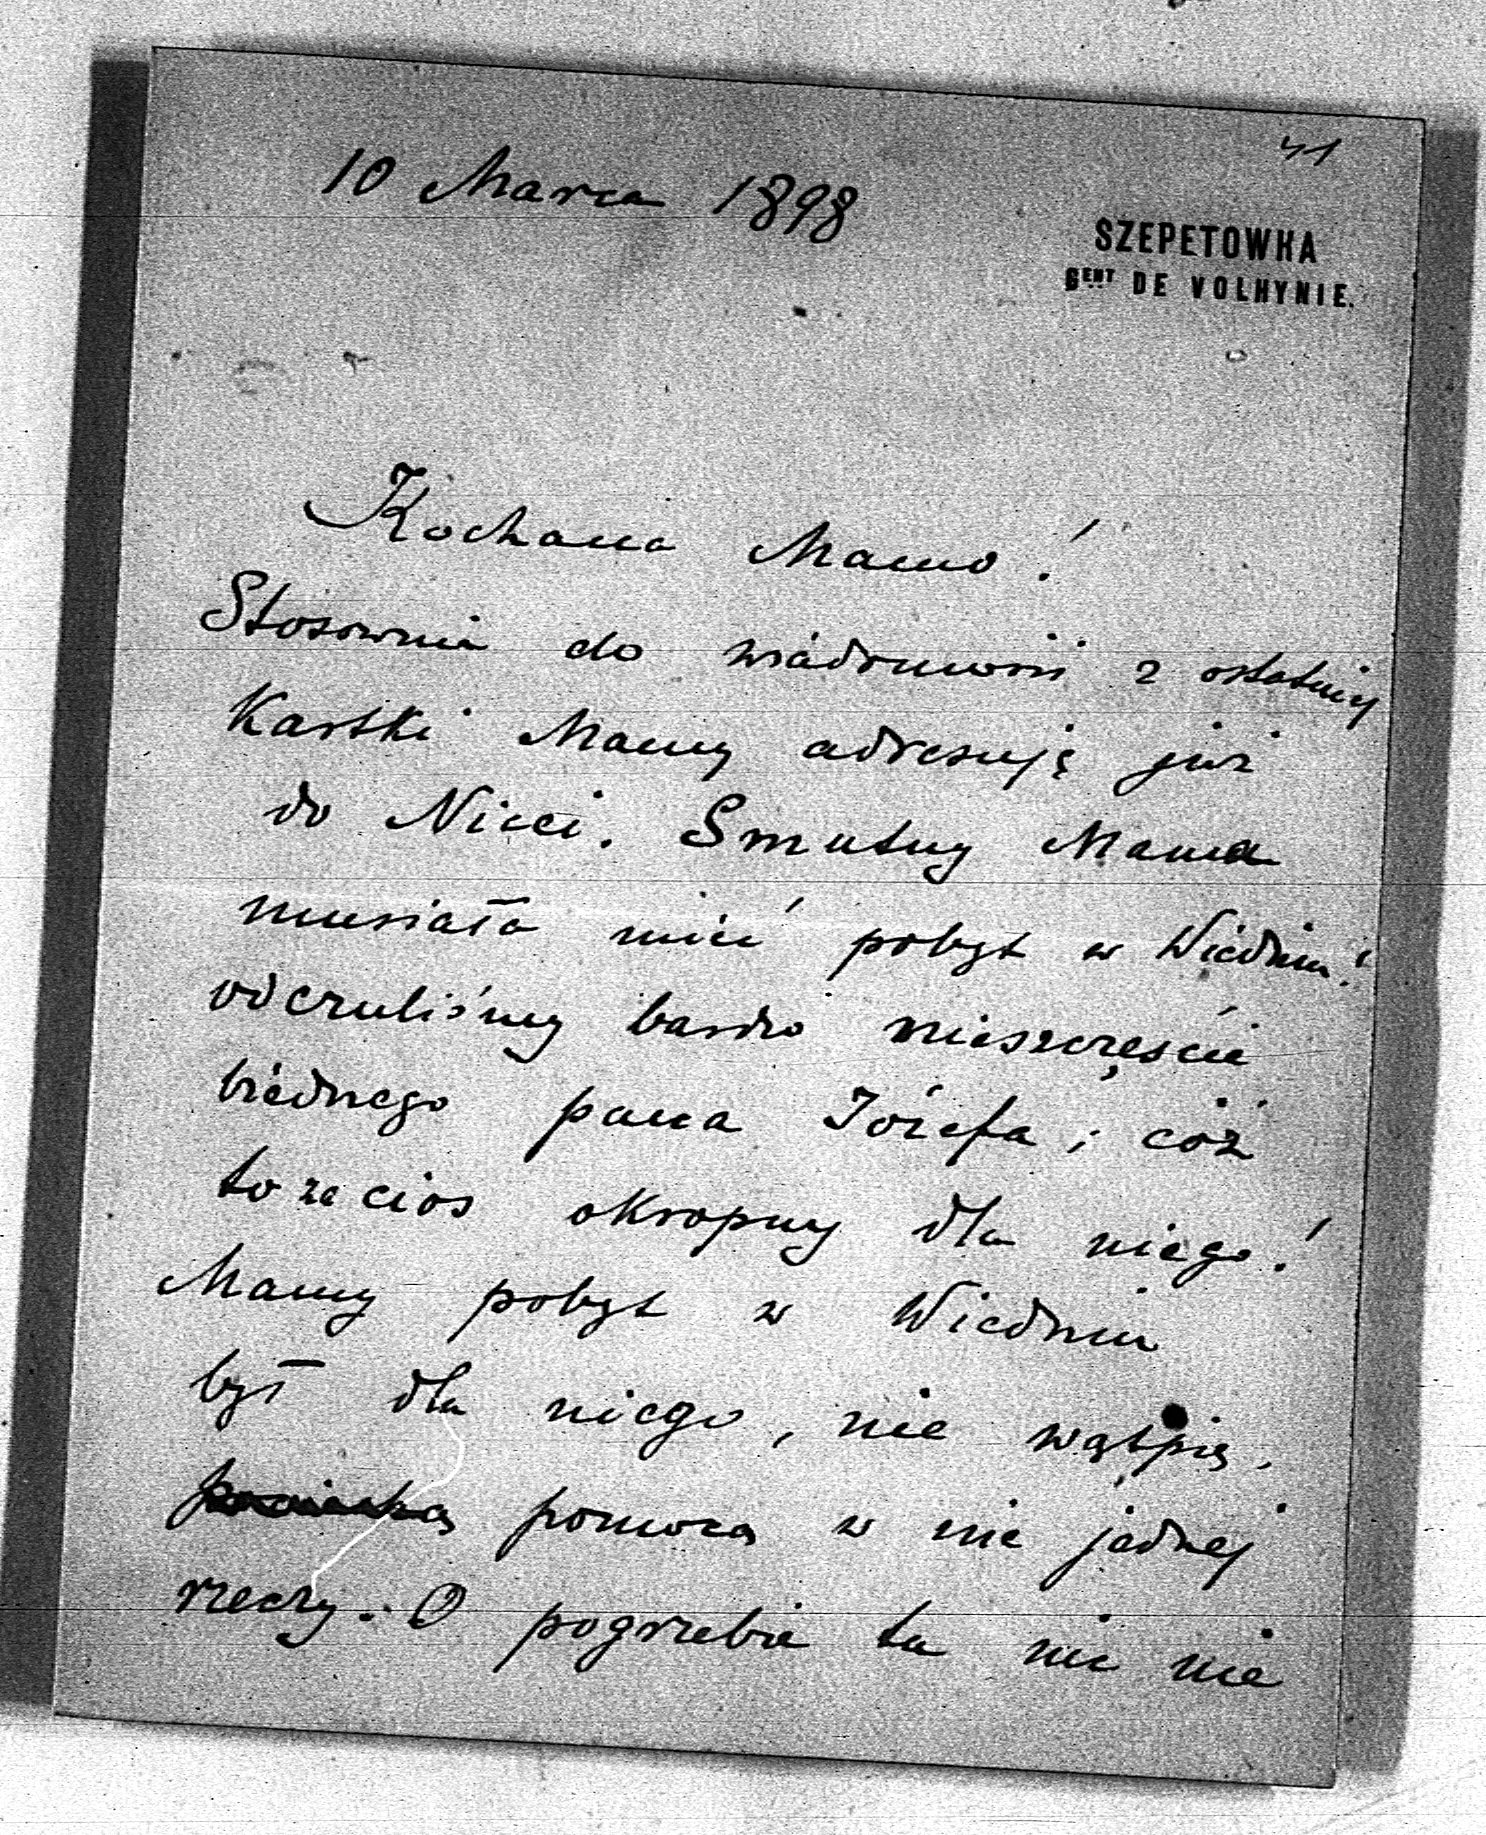 41
10 Marca 1898
SZEPETOWKA
GENT DE VOLHYNIE.
Kochana Mamo!
Stosownie do wiadomości z ostatniej
Kartki Mamy adresuję już
do Nicei. Smutny Mama
musiała mieć pobyt w Wiedniu!
odczuliśmy bardzo nieszczęście
biednego pana Józefa; cóż
to za cios okropny dla niego!
Mamy pobyt w Wiedniu
był dla niego, nie wątpię,
pomocą w nie jednej
rzeczy. O pogrzebie tu nic nie